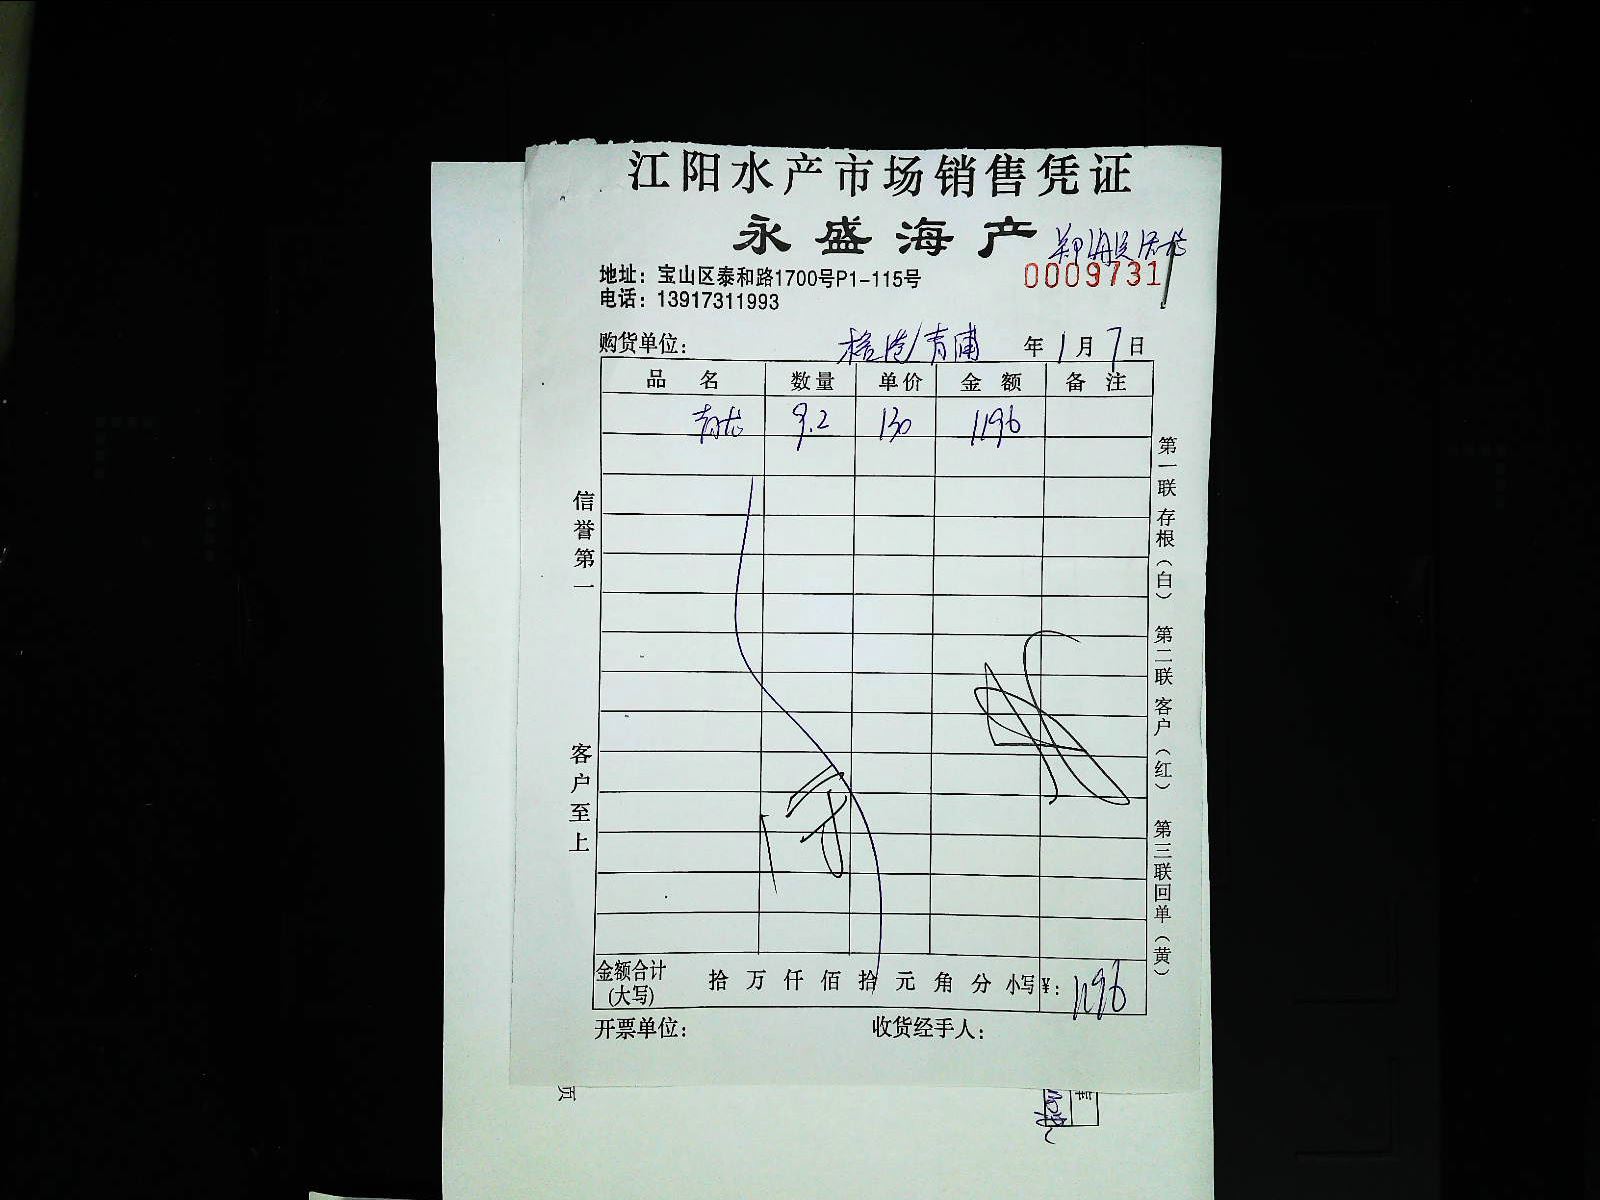 江阳水产市场销售凭证
永盛海产
地址：宝山区泰和路1700号P1-115号
0009731
电话：13917311993
购货单位： 青浦 年 1 月 7 日
品名 数量 单价 金额 备注
青龙 9.2 130 1196
信誉第一
客户至上
第一联 存根（白） 第二联 客户（红） 第三联回单（黄）
金额合计(大写) 拾 万 仟 佰 拾 元 角 分 小写¥： 1196
开票单位： 收货经手人：
页